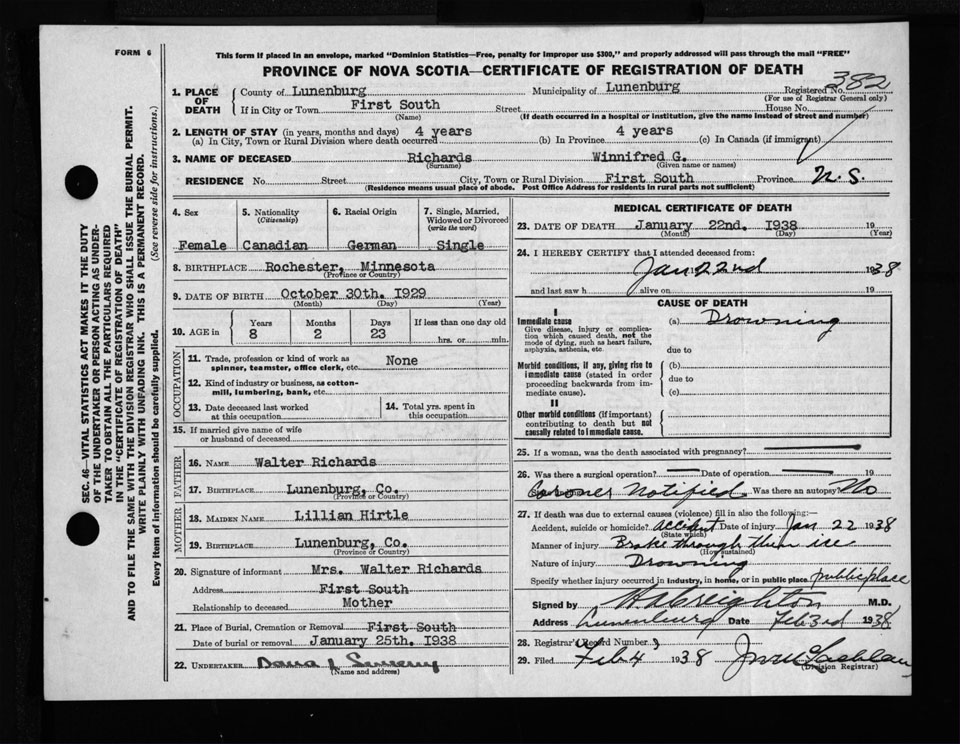 FORM 6
This form if placed in an envelope, marked "Dominion Statistics—Free, penalty for improper use $300," and properly addressed will pass through the mail "FREE"
PROVINCE OF NOVA SCOTIA—CERTIFICATE OF REGISTRATION OF DEATH
382
1. PLACE OF DEATH
County of Lunenburg Municipality of Lunenburg Registered No.
(For use of Registrar General only)
If in City or Town First South Street House No.
(Name) (If death occurred in a hospital or institution, give the name instead of street and number)
2. LENGTH OF STAY (in years, months and days) 4 years 4 years
(a) In City, Town or Rural Division where death occurred (b) In Province (c) In Canada (if immigrant)
3. NAME OF DECEASED Richards Winnifred G.
(Surname) (Given name or names)
RESIDENCE No. Street City, Town or Rural Division First South Province N.S.
(Residence means usual place of abode. Post Office Address for residents in rural parts not sufficient)
4. Sex 5. Nationality (Citizenship) 6. Racial Origin 7. Single, Married, Widowed or Divorced (write the word)
Female Canadian German Single
8. BIRTHPLACE Rochester, Minnesota
(Province or Country)
9. DATE OF BIRTH October 30th. 1929
(Month) (Day) (Year)
10. AGE in Years Months Days If less than one day old
8 2 23 hrs. or min.
OCCUPATION
11. Trade, profession or kind of work as spinner, teamster, office clerk, etc. None
12. Kind of industry or business, as cotton-mill, lumbering, bank, etc.
13. Date deceased last worked at this occupation
14. Total yrs. spent in this occupation
15. If married give name of wife or husband of deceased
FATHER
16. NAME Walter Richards
17. BIRTHPLACE Lunenburg, Co.
(Province or Country)
MOTHER
18. MAIDEN NAME Lillian Hirtle
19. BIRTHPLACE Lunenburg, Co.
(Province or Country)
20. Signature of informant Mrs. Walter Richards
Address First South
Relationship to deceased Mother
21. Place of Burial, Cremation or Removal First South
Date of burial or removal January 25th. 1938
22. UNDERTAKER
(Name and address)
MEDICAL CERTIFICATE OF DEATH
23. DATE OF DEATH January 22nd. 1938 19
(Month) (Day) (Year)
24. I HEREBY CERTIFY that I attended deceased from:
Jan 22nd 1938
and last saw h alive on 19
CAUSE OF DEATH
I
Immediate cause (a) Drowning
Give disease, injury or complication which caused death, not the mode of dying, such as heart failure, asphyxia, asthenia, etc.
due to
Morbid conditions, if any, giving rise to immediate cause (stated in order proceeding backwards from immediate cause).
(b)
due to
(c)
II
Other morbid conditions (if important) contributing to death but not causally related to immediate cause.
25. If a woman, was the death associated with pregnancy?
26. Was there a surgical operation? Date of operation 19
Coroner Notified Was there an autopsy No
27. If death was due to external causes (violence) fill in also the following:—
Accident, suicide or homicide? accident Date of injury Jan 22 1938
(State which)
Manner of injury Broke through thin ice
(How sustained)
Nature of injury Drowning
Specify whether injury occurred in industry, in home, or in public place public place
Signed by H A Creighton M.D.
Address Lunenburg Date Feb 3rd 1938
28. Registrar's Record Number
29. Filed Feb 4 1938
(Division Registrar)
SEC. 46—VITAL STATISTICS ACT MAKES IT THE DUTY
OF THE UNDERTAKER OR PERSON ACTING AS UNDER-
TAKER TO OBTAIN ALL THE PARTICULARS REQUIRED
IN THE "CERTIFICATE OF REGISTRATION OF DEATH"
AND TO FILE THE SAME WITH THE DIVISION REGISTRAR WHO SHALL ISSUE THE BURIAL PERMIT.
WRITE PLAINLY WITH UNFADING INK. THIS IS A PERMANENT RECORD.
Every item of information should be carefully supplied. (See reverse side for instructions.)